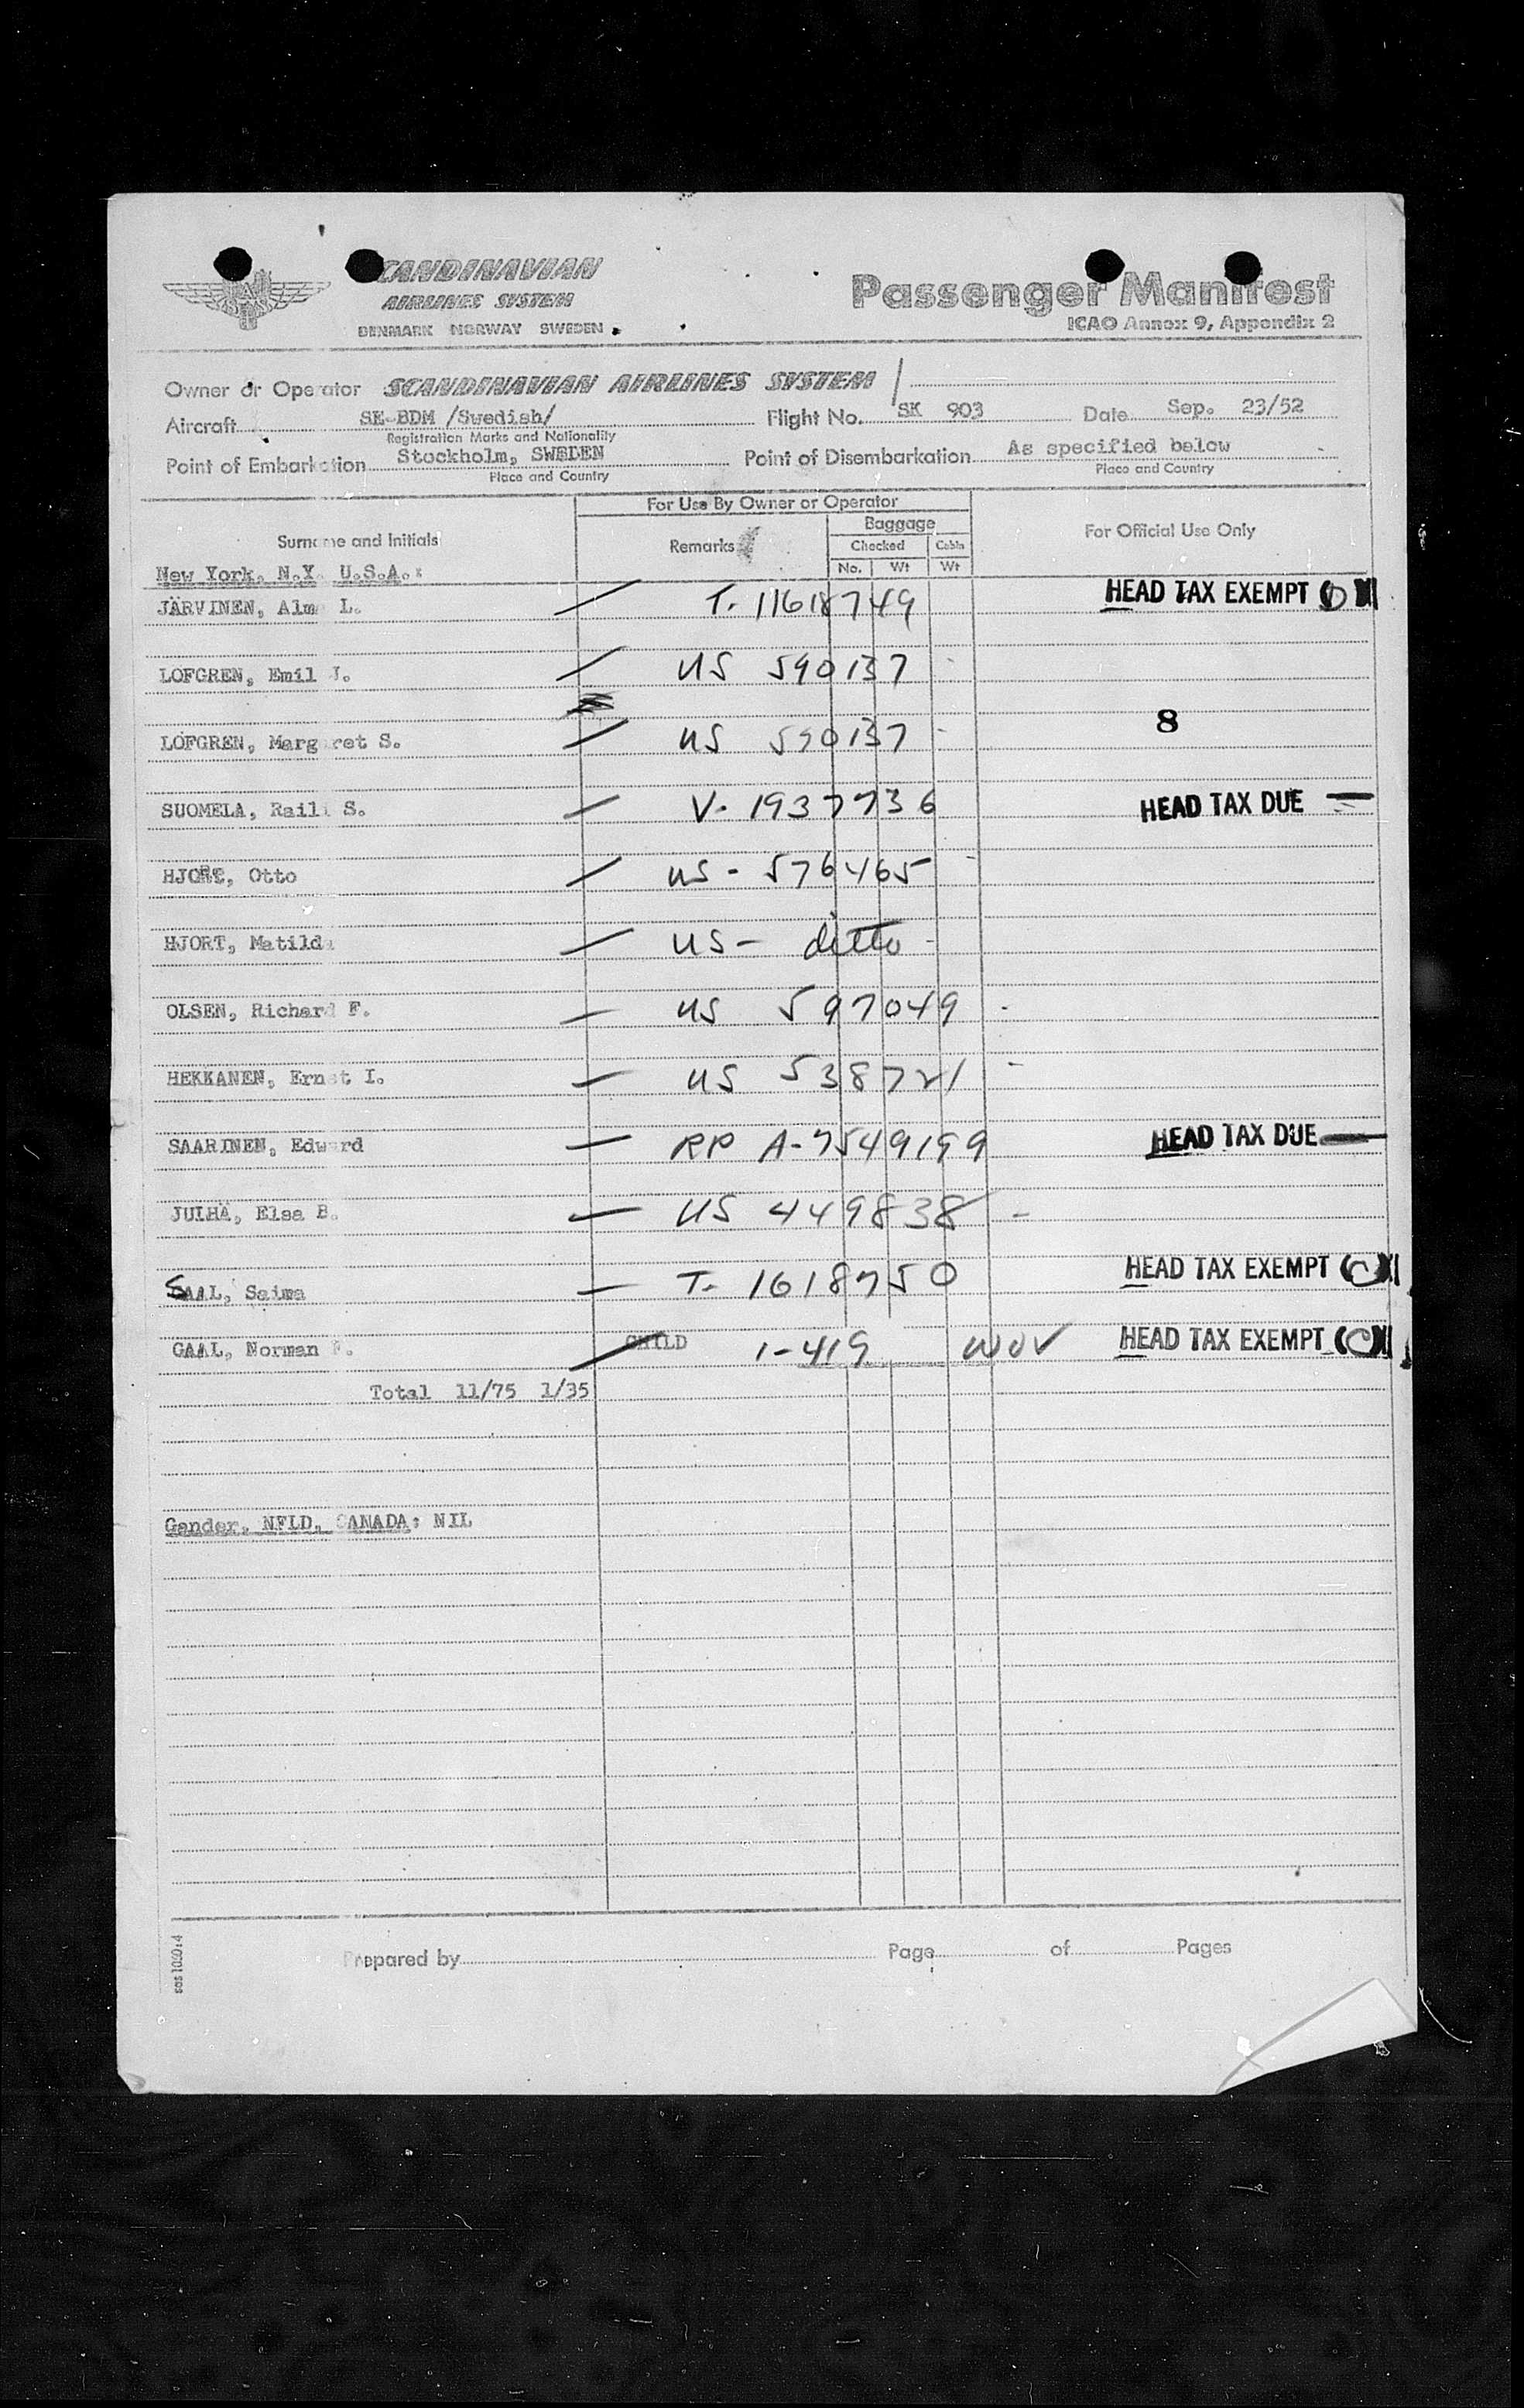 SCANDINAVIAN
AIRLINES SYSTEM
DENMARK NORWAY SWEDEN
Passenger Manifest
ICAO Annex 9, Appendix 2
Owner or Operator SCANDINAVIAN AIRLINES SYSTEM
Aircraft SE-BDM /Swedish/ Flight No. SK 903 Date Sep. 23/52
Registration Marks and Nationality
Point of Embarkation Stockholm, SWEDEN Point of Disembarkation As specified below
Place and Country Place and Country
For Use By Owner or Operator
Surname and Initials Remarks Baggage For Official Use Only
Checked Cabin
No. Wt Wt
New York, N.Y. U.S.A.:
JÄRVINEN, Alma L. T. 11618749 HEAD TAX EXEMPT
LOFGREN, Emil J. US 590137
LOFGREN, Margaret S. US 590137 8
SUOMELA, Raili S. V- 1937736 HEAD TAX DUE
HJORT, Otto US - 576465
HJORT, Matilda US - ditto
OLSEN, Richard F. US 597049
HEKKANEN, Ernst I. US 538721
SAARINEN, Edward RP A-7549199 HEAD TAX DUE
JULHÄ, Elsa B. US 449838
SAAL, Saima T- 1618750 HEAD TAX EXEMPT
GAAL, Norman F. CHILD 1-419 WOV HEAD TAX EXEMPT
Total 11/75 1/35
Gander, NFLD, CANADA: NIL
Prepared by Page of Pages